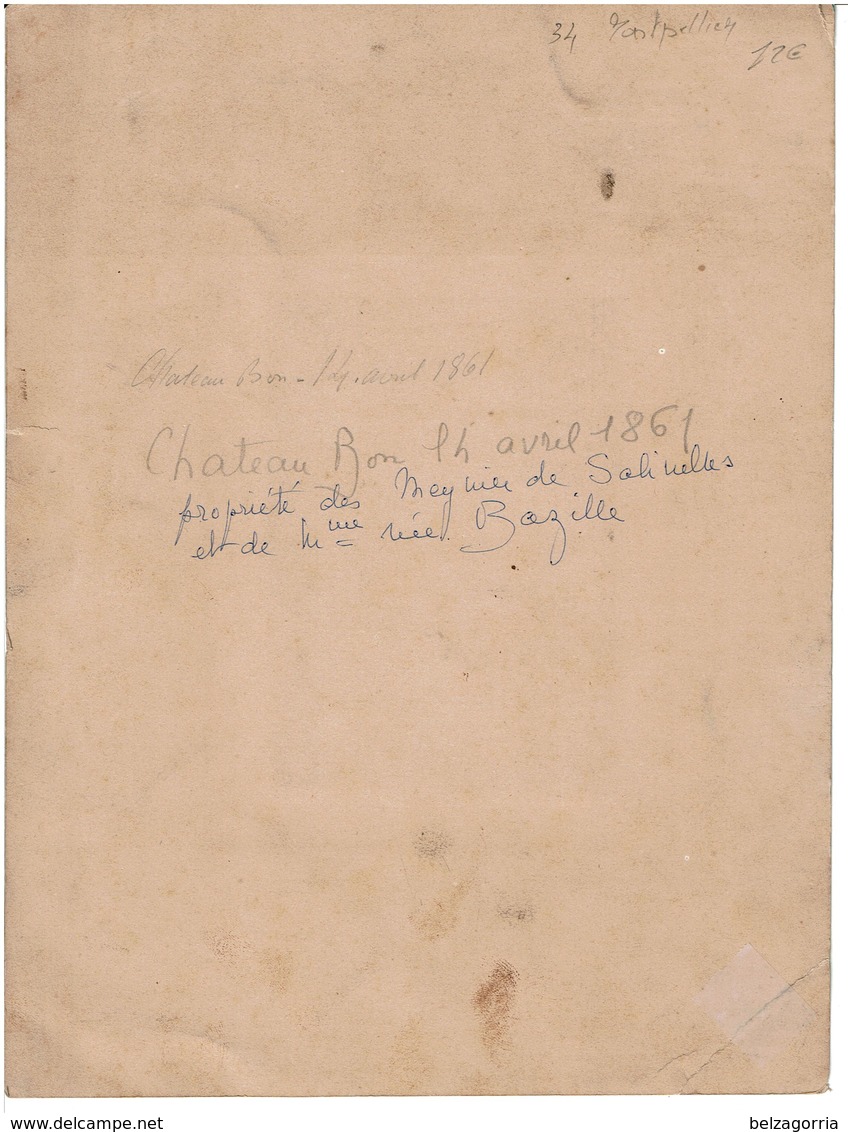 34 Montpellier
12€
Chateau Bon - 14. avril 1861
Chateau Bon 14 avril 1861
propriété des Meynier de Salinelles
et de Mme née Bazille
www.delcampe.net
belzagorria